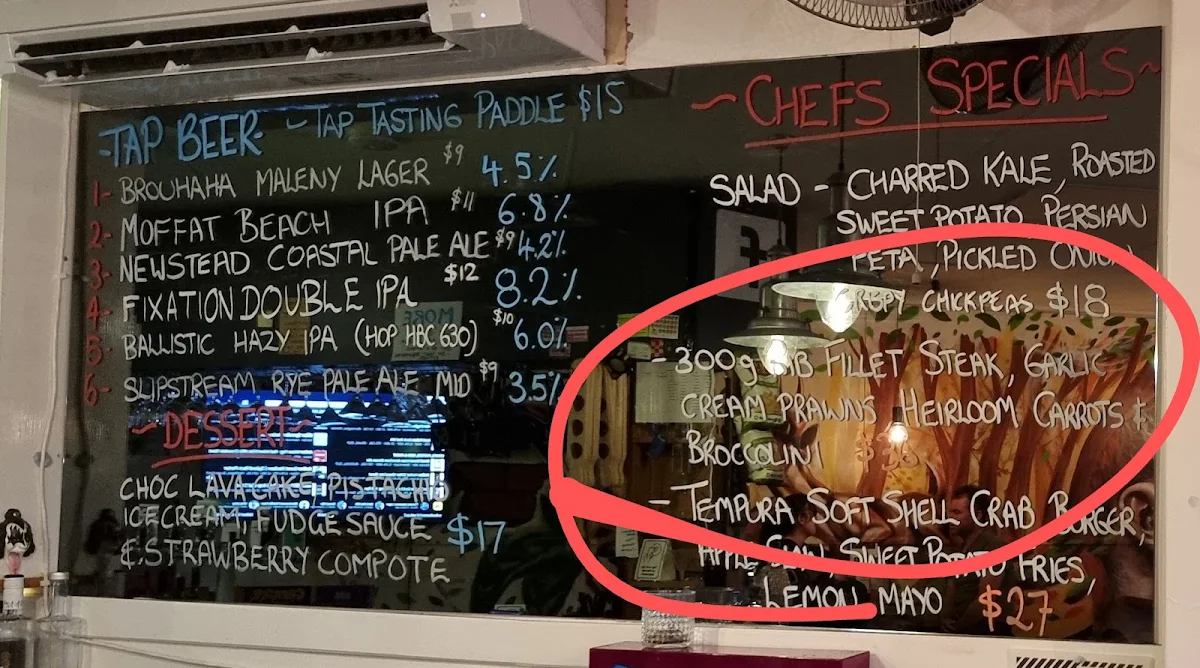 TAP BEER - TAP TASTING PADDLE $15
1- BROUHAHA MALENY LAGER $9 4.5%
2- MOFFAT BEACH IPA $11 6.8%
3- NEWSTEAD COASTAL PALE ALE $9 4.2%
4- FIXATION DOUBLE IPA $12 8.2%
5- BALLISTIC HAZY IPA (HOP HBC 630) $10 6.0%
6- SLIPSTREAM RYE PALE ALE MID $9 3.5%
~DESSERT~
CHOC LAVA CAKE, PISTACHIO
ICECREAM, FUDGE SAUCE $17
&, STRAWBERRY COMPOTE
~CHEFS SPECIALS~
SALAD - CHARRED KALE, ROASTED
SWEET POTATO PERSIAN
FETA, PICKLED ONION
CRISPY CHICKPEAS $18
- 300g RIB FILLET STEAK, GARLIC
CREAM PRAWNS HEIRLOOM CARROTS &
BROCCOLINI
- TEMPURA SOFT SHELL CRAB BURGER,
APPLE SLAW, SWEET POTATO FRIES,
LEMON MAYO $27